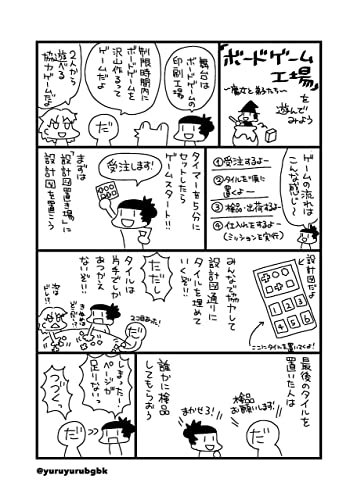 『ボードゲーム
工場』
〜魔女と影たち〜
を
遊んで
みよう
舞台は
ボードゲームの
印刷工場
制限時間内に
ボードゲームを
沢山作るって
ゲームだよ
だ
2人から
遊べる
協力ゲームだよ
ゲームの流れは
こんな感じ〜
①受注するよー
②タイルを順に
置くよー
③検品・出荷するよー
④仕入れをするよー
(ミッションを実行)
タイマーを5分に
セットしたら
ゲームスタート!!
受注します!
まずは
「設計図置き場」に
設計図を置こう
設計図だよ
1
2
3
4
5
6
ここにタイルを置いてくよ!
みんなで協力して
設計図通りに
タイルを埋めて
いくぞ!!
ただし
タイルは
片手でしか
あつかえ
ないぞ!!
2コ目あった!
だ
次は
どれ!?
最後のタイルを
置いた人は
検品
お願いします!
だ
まかせろ!
誰かに検品
してもらおう
しまったー!
ページが
足りないっ
だ
つづくっ
@yuruyurubgbk